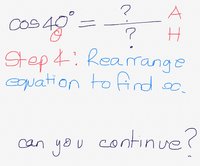 cos 40° = ? / ? A / H
θ
Step 4: Rearrange
equation to find x.
can you continue?